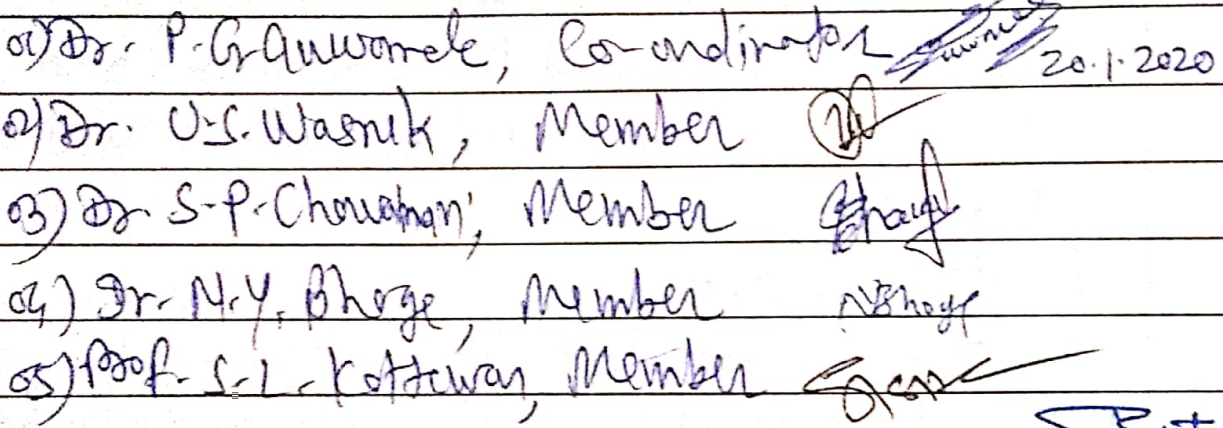 01) Dr. P. G. Gawande, Co-ordinator 20.1.2020
02) Dr. U.S. Wasnik, Member
03) Dr. S-P. Chouhan, Member
04) Dr. N.Y. Bhoge, Member NBhoge
05) Prof. S-L. Kottewar, Member